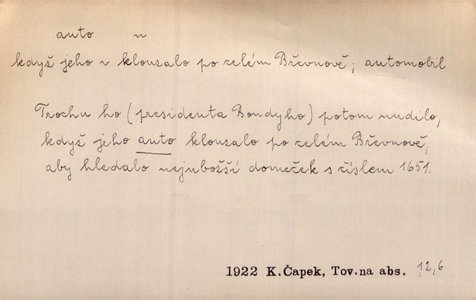 auto n
když jeho n klouzalo po celém Břevnově; automobil
Trochu ho (presidenta Bondyho) potom nudilo,
když jeho auto klouzalo po celém Břevnově,
aby hledalo nejubožší domeček s číslem 1651.
1922 K.Čapek, Tov.na abs. 12,6